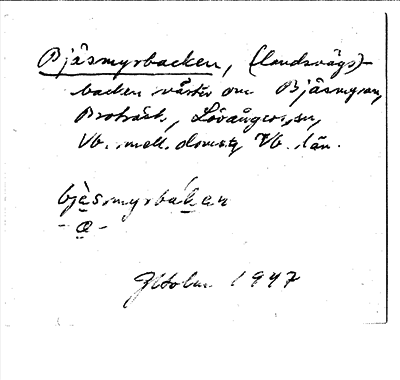 Bjäsmyrbacken, (landsvägs)-
backen väster om Bjäsmyran,
Broträsk, Lövångers sn,
Vb. mell. doms., Vb. län.
bjäsmyrbaken
- a -
1947